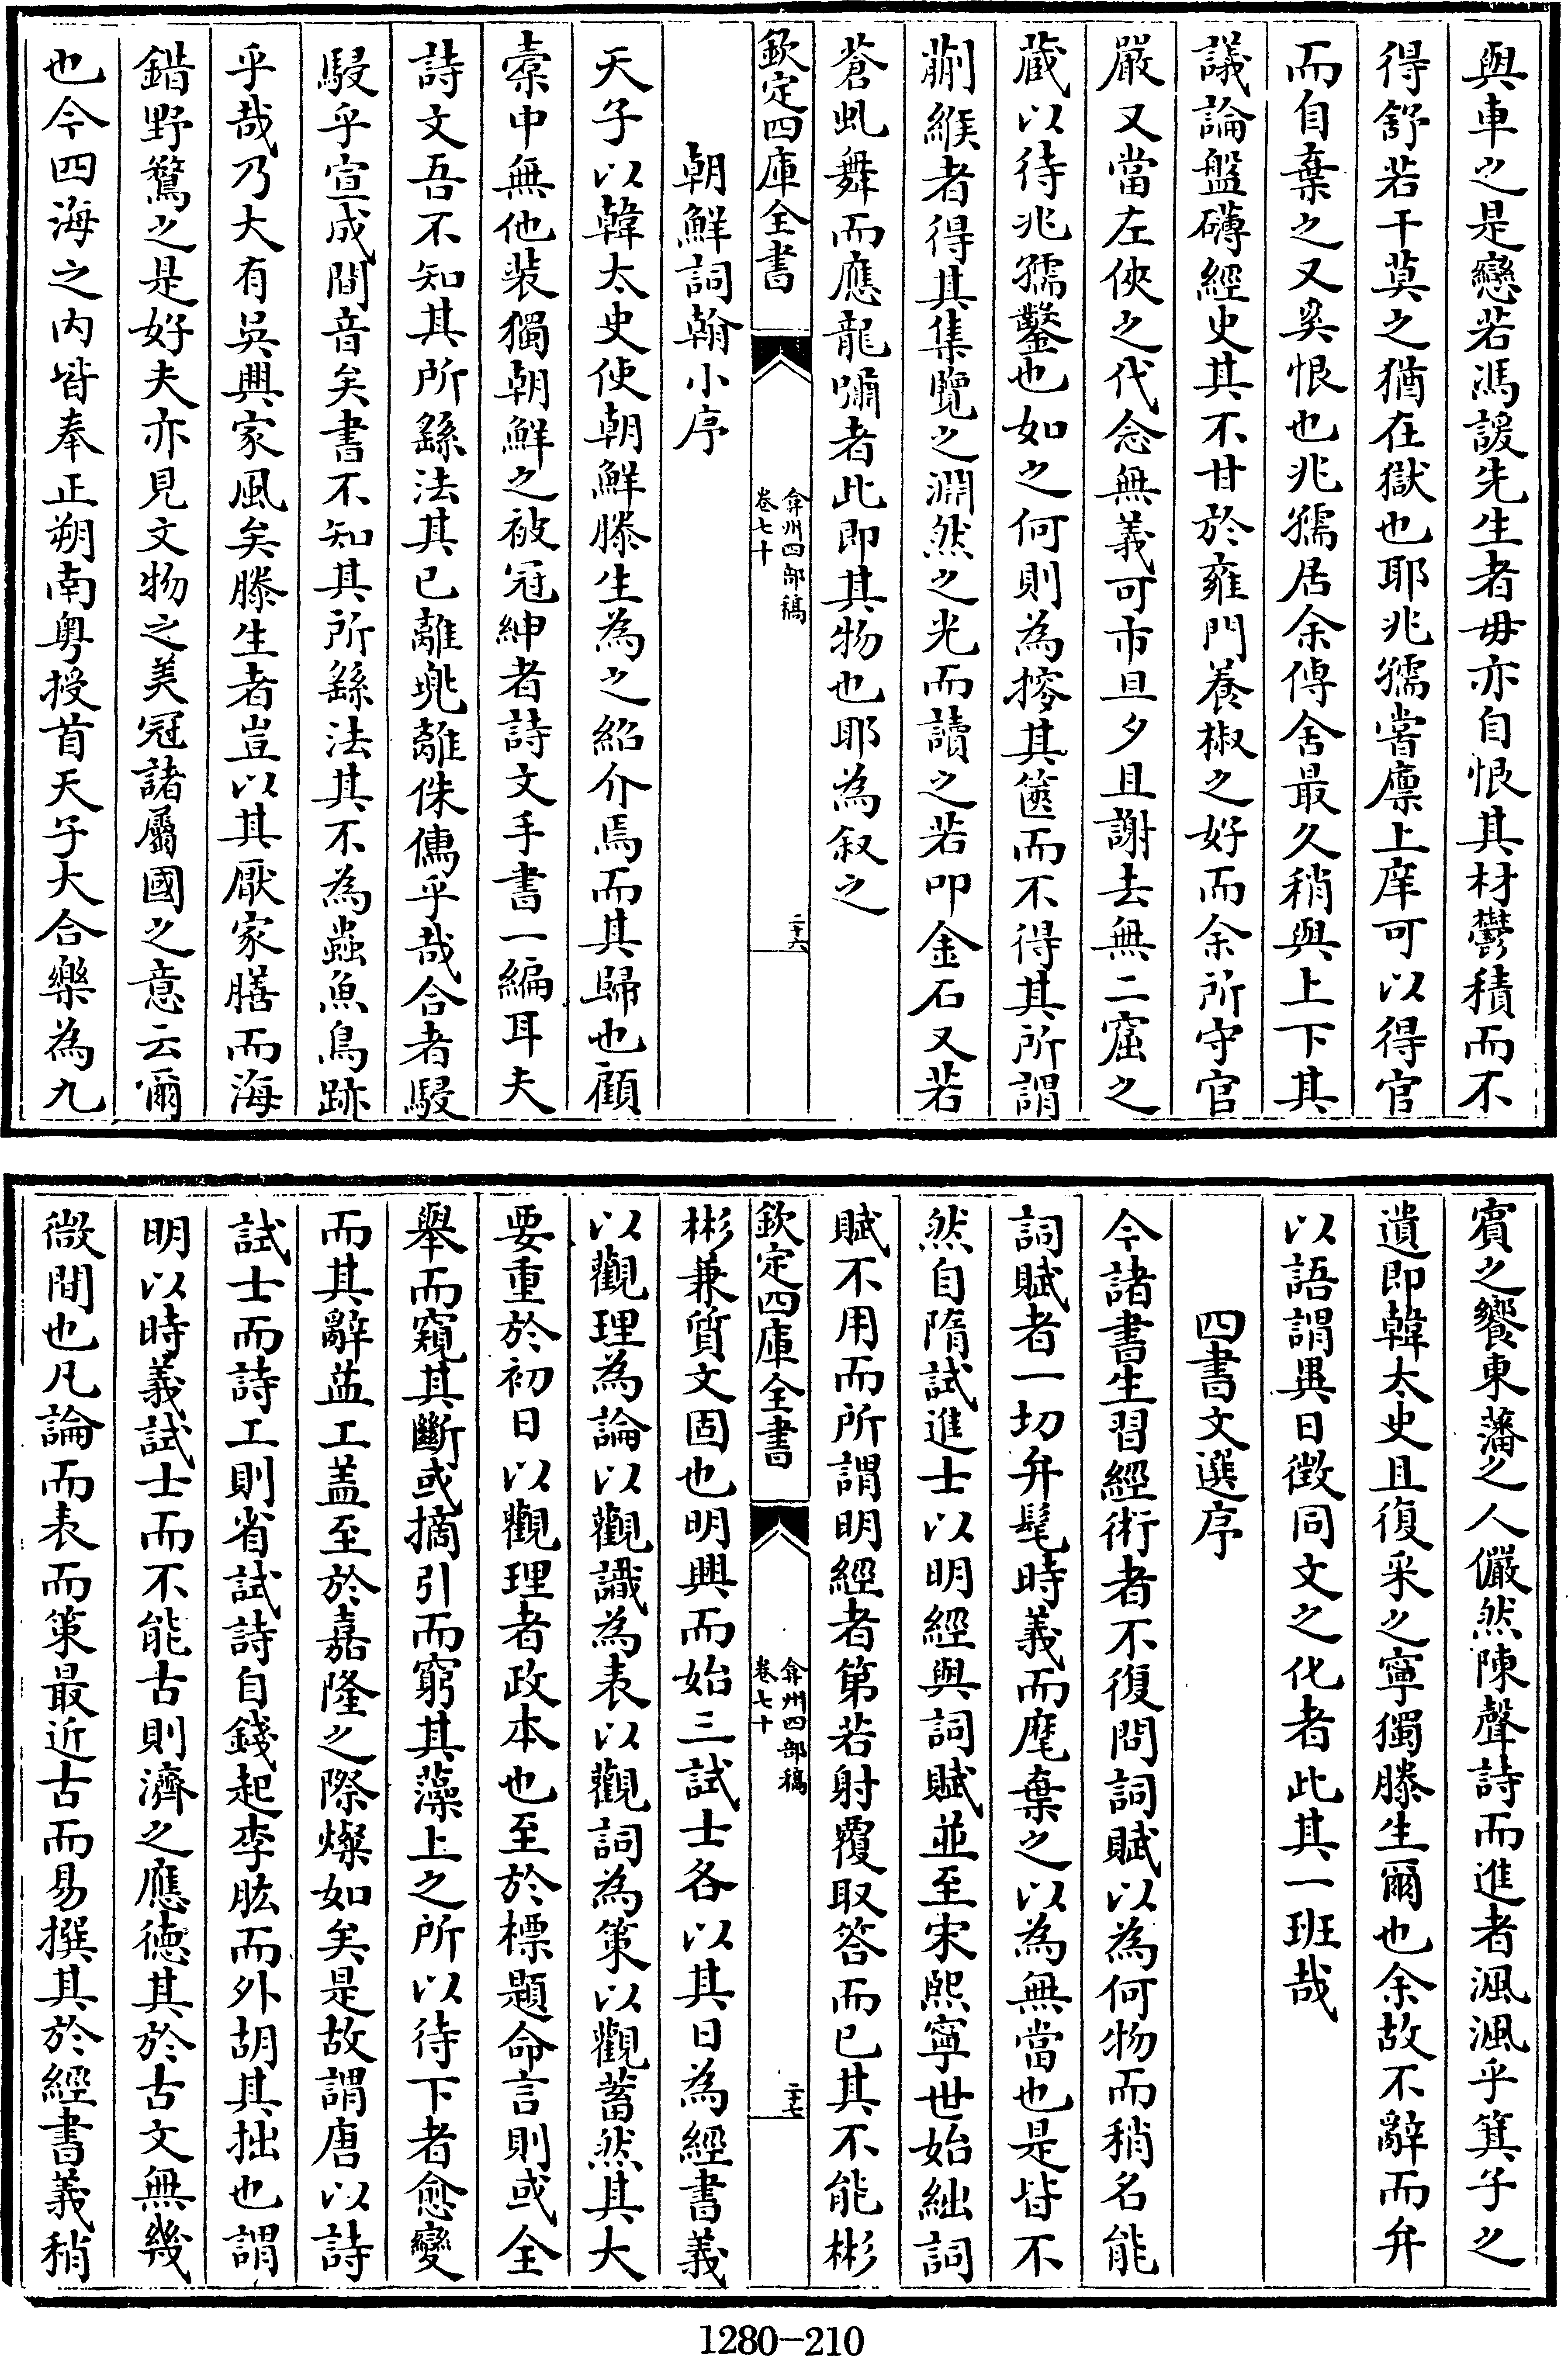 與車之是戀若馮諼先生者毋亦自恨其材鬱積而不
得舒若干莫之猶在獄也耶兆孺嘗廩上庠可以得官
而自棄之又奚恨也兆孺居余傳舍最久稍與上下其
議論盤礴經史其不甘於雍門養椒之好而余所守官
嚴又當左俠之代念無義可市旦夕且謝去無二窟之
藏以待兆孺鑿也如之何則為摉其篋而不得其所謂
蒯緱者得其集覽之淵然之光而讀之若叩金石又若
蒼虬舞而應龍嘯者此即其物也耶為叙之
欽定四庫全書
弇州四部稿
卷七十
二十六
朝鮮詞翰小序
天子以韓太史使朝鮮滕生為之紹介焉而其歸也顧
橐中無他裝獨朝鮮之被冠紳者詩文手書一編耳夫
詩文吾不知其所繇法其已離兠離侏㒧乎哉合者駸
駸乎宣成間音矣書不知其所繇法其不為蟲魚鳥跡
乎哉乃大有吳興家風矣滕生者豈以其厭家膳而海
錯野鶩之是好夫亦見文物之美冠諸屬國之意云爾
也今四海之内皆奉正朔南粤授首天子大合樂為九
賓之饗東藩之人儼然陳聲詩而進者渢渢乎箕子之
遺即韓太史且復采之寧獨滕生爾也余故不辭而弁
以語謂異日徵同文之化者此其一班哉
四書文選序
今諸書生習經術者不復問詞賦以為何物而稍名能
詞賦者一切弁髦時義而麾棄之以為無當也是皆不
然自隋試進士以明經與詞賦並至宋熙寧世始絀詞
賦不用而所謂明經者第若射覆取答而已其不能彬
欽定四庫全書
弇州四部稿
卷七十
二十七
彬兼質文固也明興而始三試士各以其日為經書義
以觀理為論以觀識為表以觀詞為策以觀蓄然其大
要重於初日以觀理者政本也至於標題命言則或全
舉而窺其斷或摘引而窮其藻上之所以待下者愈變
而其辭益工盖至於嘉隆之際燦如矣是故謂唐以詩
試士而詩工則省試詩自錢起李肱而外胡其拙也謂
明以時義試士而不能古則濟之應德其於古文無幾
微間也凡論而表而策最近古而易撰其於經書義稍
1280-210